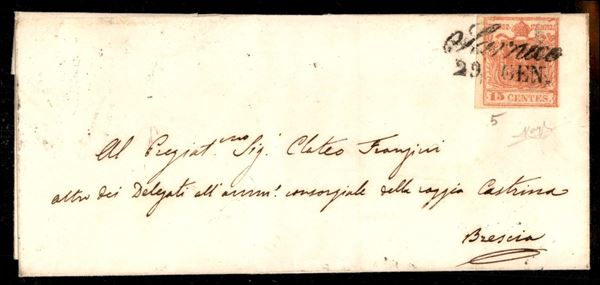 Sarnico
29 GEN.
15 CENTES.
5
Al Pregiat.mo Sig. Clateo Franzini
altro dei Delegati all'amm.e consorziale della roggia Castrina
Brescia